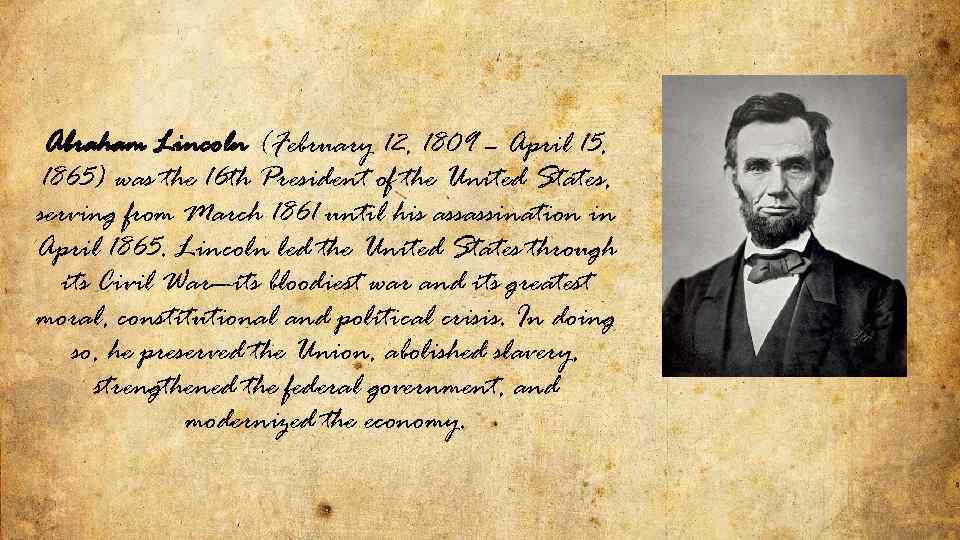 Abraham Lincoln (February 12, 1809 – April 15,
1865) was the 16th President of the United States,
serving from March 1861 until his assassination in
April 1865. Lincoln led the United States through
its Civil War—its bloodiest war and its greatest
moral, constitutional and political crisis. In doing
so, he preserved the Union, abolished slavery,
strengthened the federal government, and
modernized the economy.